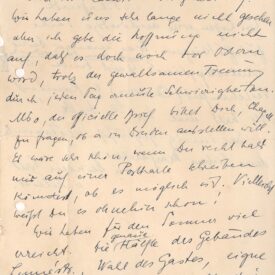 wir haben uns sehr lange nicht gesehen
aber ich gebe die Hoffnung nicht
auf, daß es doch noch vor Ostern
wird, trotz der gewaltsamen Trennung
durch jeden Tag erneute Schwierigkeiten.
Also, der offizielle Brief bittet Dich,
zu fragen, ob er in ausstellen will.
Es wäre sehr schön, wenn Du recht bald
mir auf einer Postkarte schreiben
könntest, ob es möglich ist. Vielleicht
weißt Du es ohnehin schon!
Wir haben für den Sommer viel
erreicht. Die Hälfte des Gebäudes
Wahl des Gastes, eigne